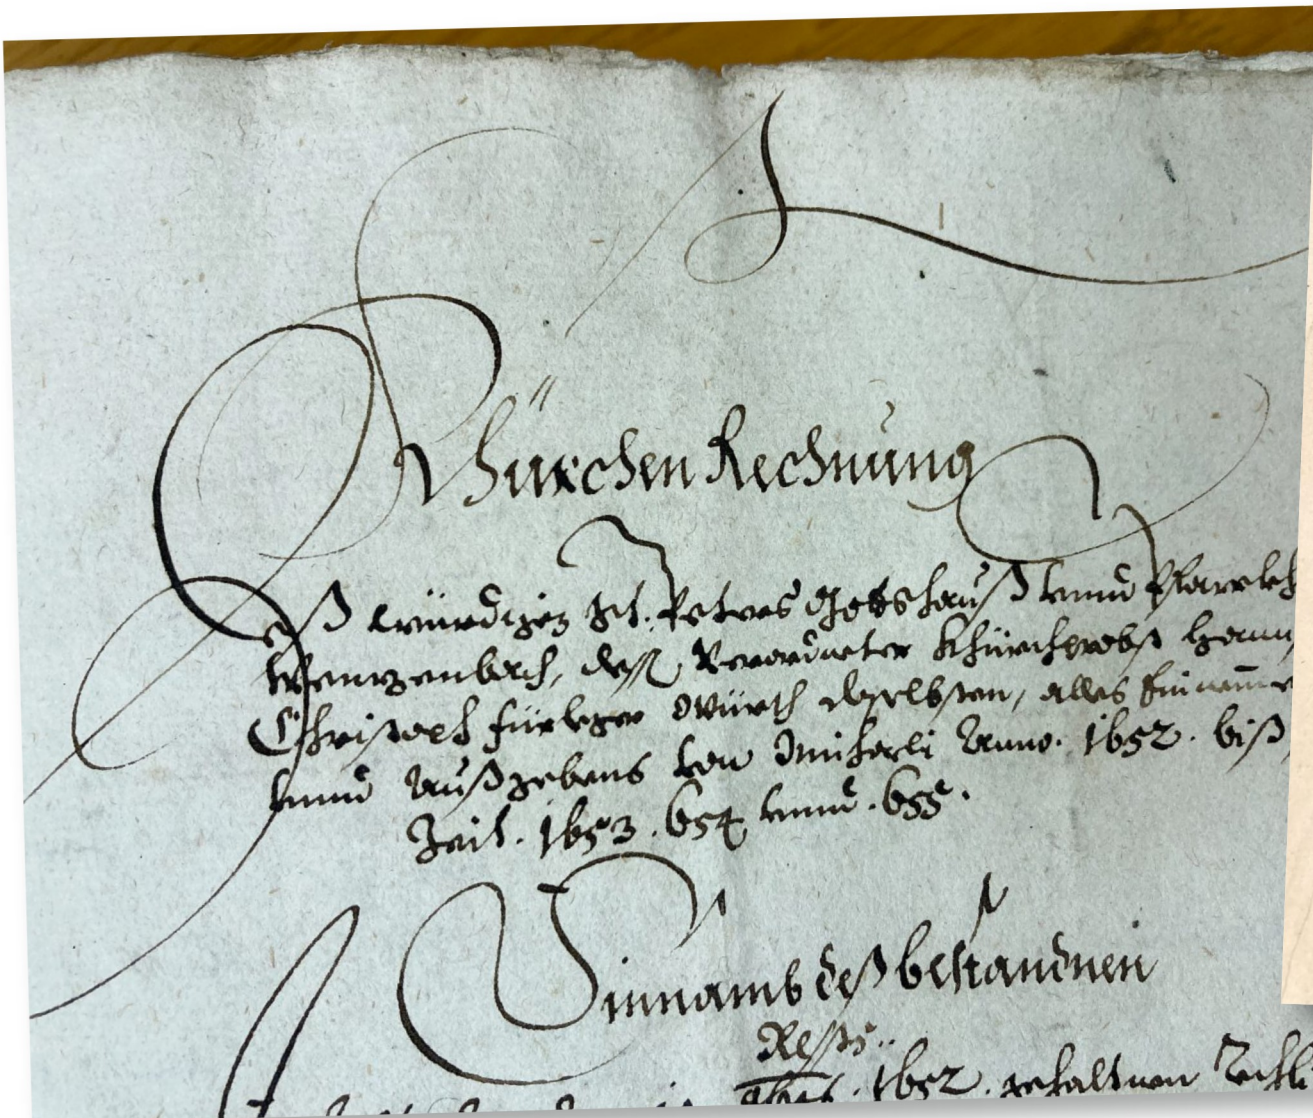 Khürchen Rechnung
Deß würdigen St. Peters Gottshauß vnnd Pfarrkh
Wenzenbach, deß Verordneter Khürchprobst Hann
Christoph fürleger Würth daselbsten, alles Einname
vnnd Außgebens von Michaeli Anno. 1652. biß
Zeit. 1653. 654 vnnd. 655.
Einnamb deß bestandnen
Rests..
1652. gehaltnen